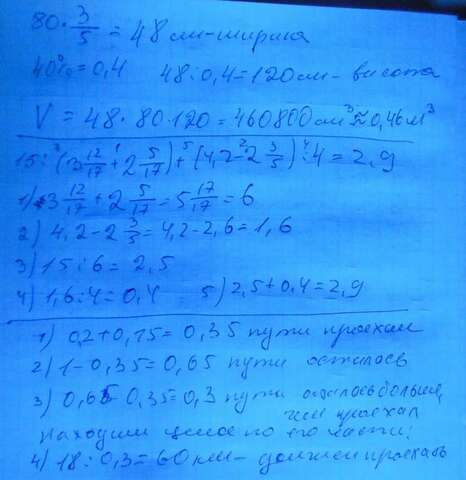 80 · 3/5 = 48 см - ширина
40% = 0,4 48 : 0,4 = 120 см - высота
V = 48 · 80 · 120 = 460800 см³ ≈ 0,46 м³
15 : (3 12/17 + 2 5/17) + (4,2 - 2 3/5) : 4 = 2,9
1) 3 12/17 + 2 5/17 = 5 17/17 = 6
2) 4,2 - 2 3/5 = 4,2 - 2,6 = 1,6
3) 15 : 6 = 2,5
4) 1,6 : 4 = 0,4 5) 2,5 + 0,4 = 2,9
1) 0,2 + 0,15 = 0,35 пути проехал
2) 1 - 0,35 = 0,65 пути осталось
3) 0,65 - 0,35 = 0,3 пути осталось больше,
чем проехал
Находим целое по его части:
4) 18 : 0,3 = 60 км - должен проехать